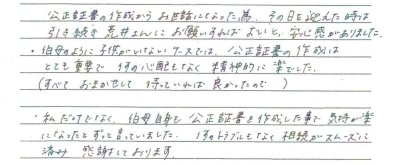 公正証書の作成からお世話になった為、その日を迎えた時は
引き続き荒井さんにお願いすればよいと、安心感がありました。
・伯母のように子供がいないケースでは、公正証書の作成は
とても重要で 何の心配もなく精神的に楽でした。
(すべておまかせして 待っていれば良かったので )
・私だけでなく、伯母自身も公正証書を作成した事で気持が楽
になったとずっと言っていました。何のトラブルもなく相続がスムーズに
済み 感謝しております。